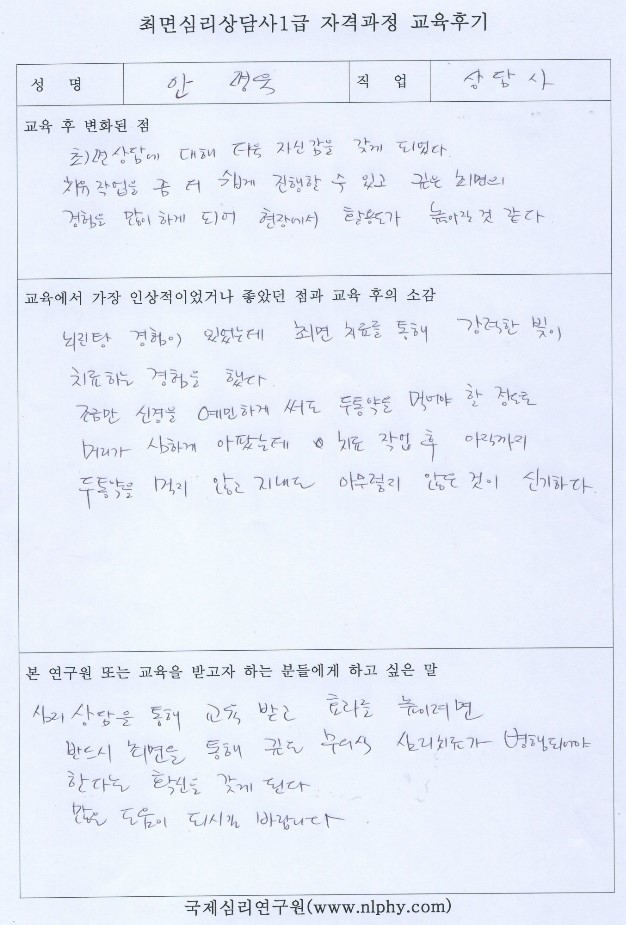 최면심리상담사1급 자격과정 교육후기
성 명 안 직 업 상담사
교육 후 변화된 점
최면상담에 대해 더욱 자신감을 갖게 되었다.
치유 작업을 좀 더 쉽게 진행할 수 있고 깊은 최면의
경험을 많이 하게 되어 현장에서 활용도가 높아질 것 같다
교육에서 가장 인상적이었거나 좋았던 점과 교육 후의 소감
경험이 있었는데 최면 치료를 통해 강력한 빛이
치료하는 경험을 했다.
조금만 신경을 예민하게 써도 두통약을 먹어야 할 정도로
머리가 심하게 아팠는데 치료 작업 후 아직까지
두통약을 먹지 않고 지내도 아무렇지 않은 것이 신기하다.
본 연구원 또는 교육을 받고자 하는 분들에게 하고 싶은 말
심리 상담을 통해 교육 받고 효과를 높이려면
반드시 최면을 통해 깊은 무의식 심리치료가 병행되어야
한다는 확신을 갖게 된다.
많은 도움이 되시길 바랍니다.
국제심리연구원(www.nlphy.com)